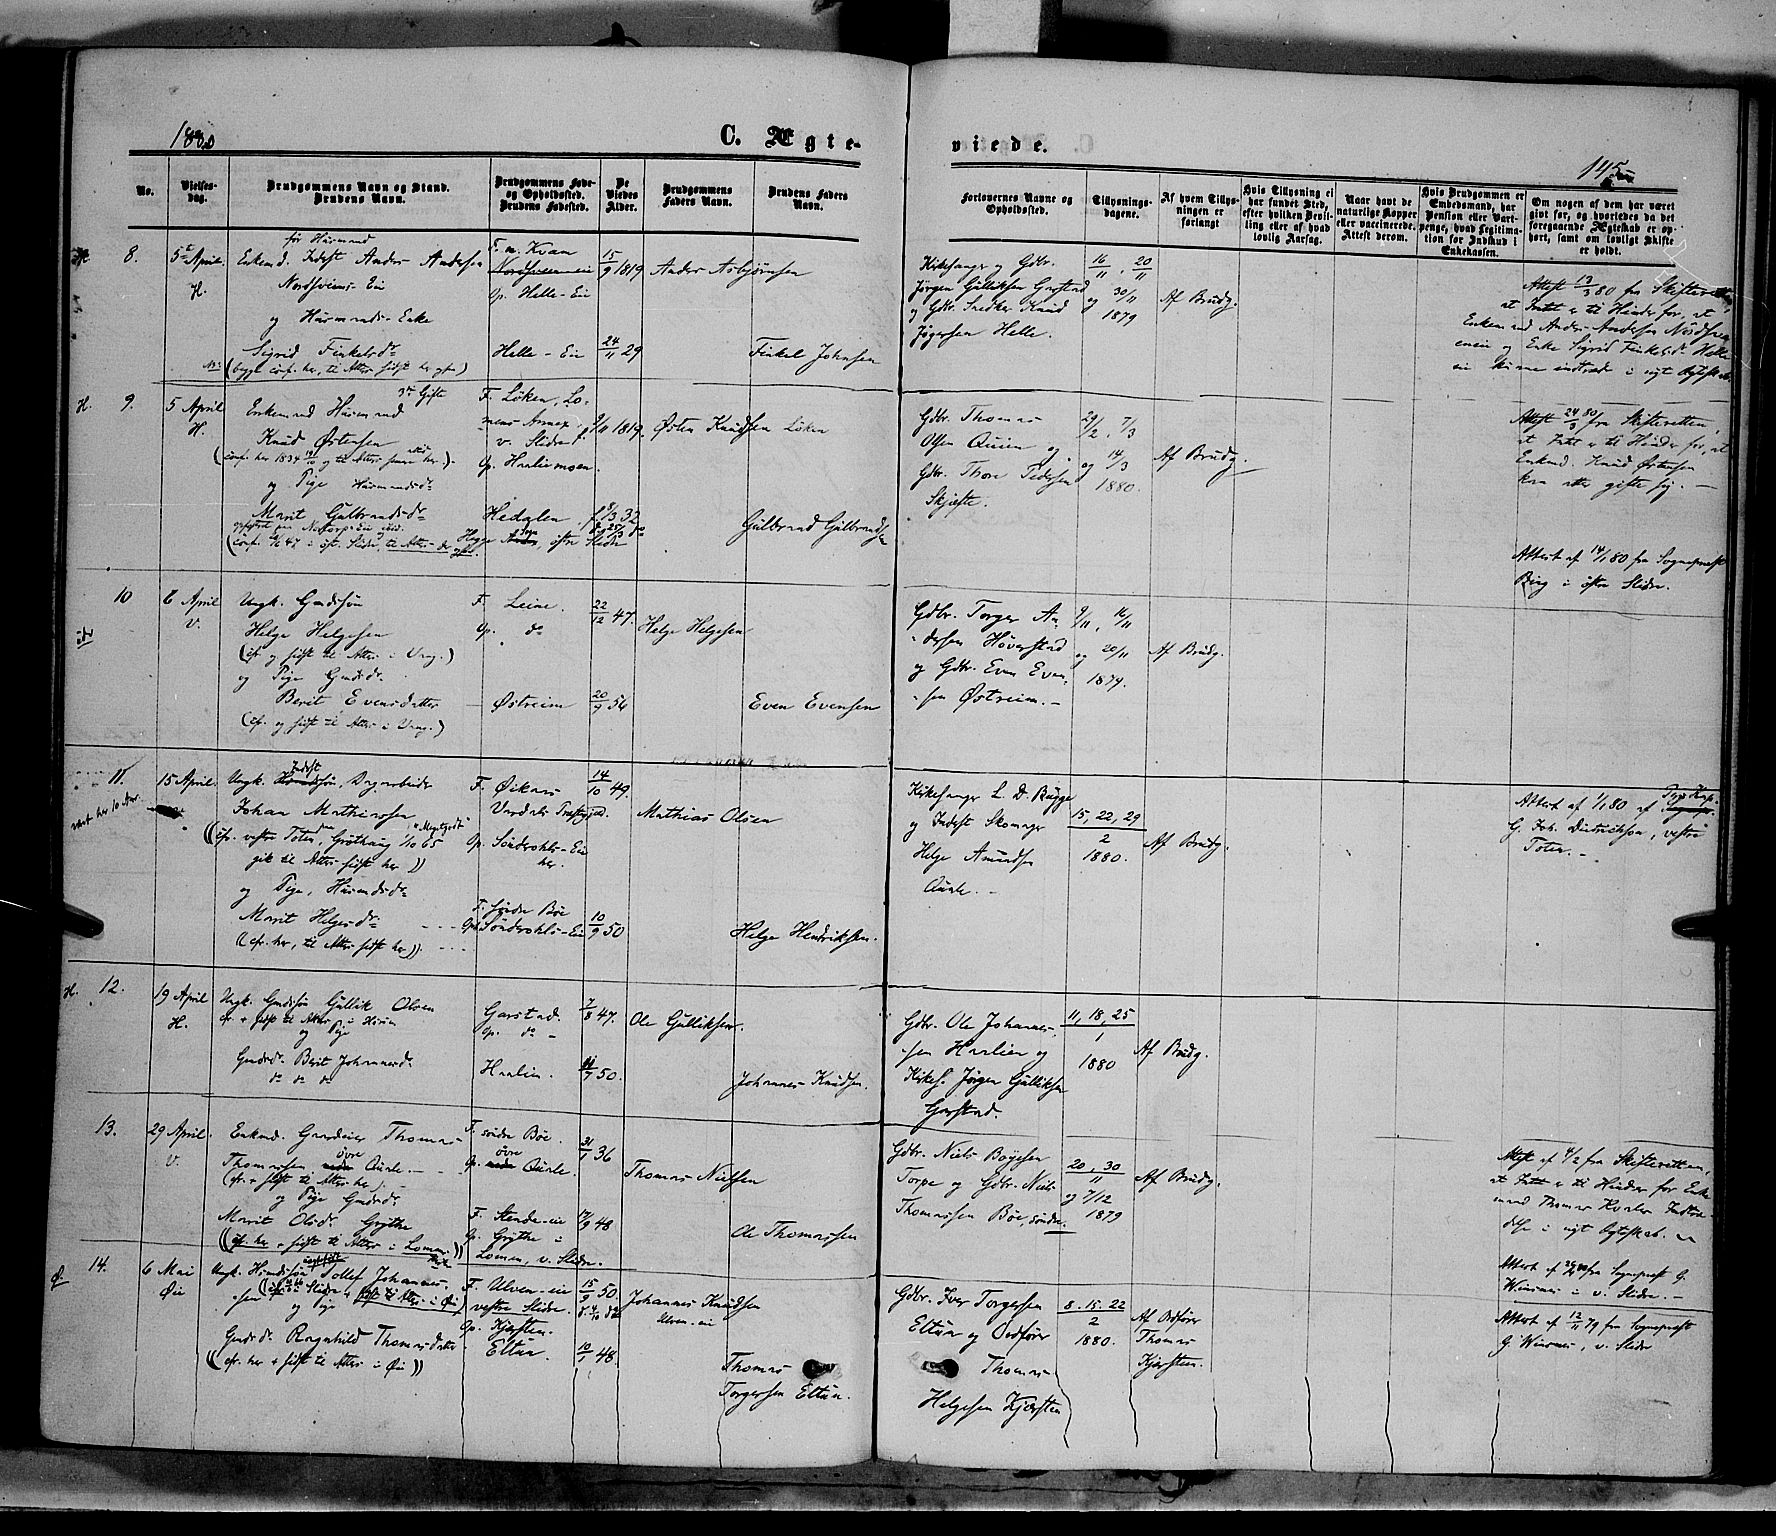 1880
C. Ægte-
viede.
145
No.
Vielses-
dag.
Brudgommens Navn og Stand.
Brudens Navn.
Brudgommens Føde-
og Opholdssted.
Brudens Fødested.
De
Viedes
Alder.
Brudgommens
Faders Navn.
Brudens Faders
Navn.
Forlovernes Navne og
Opholdssted.
Tillysnings-
dagene.
Af hvem Tillys-
ningen er
forlangt
Hvis Tillysning ei
har fundet Sted,
efter hvilken Bevil-
ling eller af hvad
lovlig Aarsag.
Naar havt de
naturlige Kopper
eller vaccinerede.
Attest derom.
Hvis Brudgommen er
Embedsmand, har
Pension eller Vart-
penge, hvad Legitima-
tion for Indskud i
Enkekassen.
Om nogen af dem har været
gift før, og hvorledes da det
foregaaende Ægteskab er op-
hørt, samt om lovligt Skifte
er holdt.
8.
5te April
H.
før Huusmand
Enkemd. Inderst Anders Andersen
Nordsveins-Eie
og Huusmands-Enke
Sigrid Finkelsdr
(begge conf. her, til Alters sidst her)
F. n. Kvam
Nordsveen-eie
Op. Helle-Eie
Helle-Eie
15/9 1819
24/11 29
Anders Asbjørnsen
Finkel Johnsen
Kirkesanger og Gdbr.
Jørgen Gulliksen Garstad
og Gdbr. Snedker Knud
Jøgersen Helle.
16/11, 20/11
og 30/11
1879
Af Brudg.
Attest 13/3 80 fra Skifteretten,
at Intet er til Hinder for, at
Enkemand Anders Andersen Nordsveen-
eie og Enke Sigrid Finkelsdr. Helle-
eie kunne indtræde i nyt Ægteskab.
H.
9.
5 April
H.
3die Gifte
Enkemand Huusmand
Knud Østensen
og Pige Huusmandsdr
Marit Gulbrandsdr
F. Løken, Lo-
mens Annex
v. Slidre
Op. Haalimoen.
Hedalen
9/11 1819.
Østen Knudsen Løken
Gulbrand Gulbrandsen
Gdbr. Thomas
Olsen Quien og
Gdbr. Thore Pedersen
Skjefte.
29/2, 7/3
og 14/3
1880.
Af Brudg.
Attest 24/3 80 fra Skifteretten,
at Intet er til Hinder for, at
Enkmd. Knud Østensen
kan atter gifte sig. —
Attest af 14/1 80 fra Sognepræst
Bing i østre Slidre.
10
6 April
V.
Ungk. Gaardsøn
Helge Helgesen
(cf. og sidst til Alters i Vang.)
og Pige Gaardsdr.
Berit Evensdatter
(cf. og sidst til Alters i Vang.)
F. Leine.
Op. do
Østreim
22/12 47.
20/9 56
Helge Helgesen
Even Evensen
Gdbr. Torger An-
dersen Høverstad
og Gdbr. Even Even-
sen Østreim. -
9/11, 16/11
og 20/11
1879.
Af Brudg.
11.
15 April.
Inderst
Ungk. Huusmdsøn, Dagarbeider
Johan Mathiassen
og Pige, Huusmdsdr
Marit Helgesdr
(cf. her, til Alters sidst her).
F. Øiknes
Vardals Præstegjeld.
Op. Søndrohls-Eie
her.
F. søndre Bøe
Op. Søndrohls-Eie
14/10 49.
10/9 50
Mathias Olsen
Helge Hendriksen.
Kirkesanger L. D. Bugge
og Inderst Skomager
Helge Amundsen
Qurle. -
15, 22, 29
2
1880.
Af Brudg.
Attest af 1/1 80 af Pers. Kap.
G. Joh. Dietrichson, vestre
Toten. -
H.
12.
19 April
H.
Ungk. Gaardsøn Gullik Olsen
og Pige
Gaardsdr. Berit Johannesdr
do do do
Garstad.
Op. do -
Haalien.
7/8 47.
11/7 50.
Ole Gulliksen.
Johannes Knudsen.
Gdbr. Ole Johannes-
sen Haalien og
Kirkes. Jørgen Gulliksen
Garstad.
11, 18, 25
1
1880
Af Brudg.
13.
29 April.
V.
Enkmd. Gaardeier Thomas
Thomassen øvre Qurle. -
(cf. + sidst til Alters her).
og Pige Gaardsdr.
Marit Olsdr. Grythe
(cf. her + sidst til Alters i Lomen.)
F. søndre Bøe.
Op. øvre Qurle.
F. Stende-eie
Op. Grythe i
Lomen, v. Slidre.
31/1 36
17/9 48
Thomas Nielsen
Ole Thomassen
Gdbr. Niels Boyesen
Torpe og Gdbr. Niels
Thomassen Bøe, søndre.
20, 30
11
og 7/12
1879
Af Brudg.
Attest af 4/2 fra Skifteretten,
at Intet er til Hinder for Enke-
mand Thomas Indtræ-
delse i nyt Ægteskab.
Ø
14.
6 Mai
Øie
Ungk. Huusmdsøn Tollef Johannes-
sen
og Pige
Gaardsdr. Ragnhild Thomasdatter
(cf. her + sidst til Alters i Øie)
F. Ulven-eie
vestre Slidre.
Op. Kjersten.
Eltun.
15/9 50
10/1 48.
Johannes Knudsen
Ulven-eie
Thomas
Torgersen Eltun.
Gdbr. Iver Torgersen
Eltun og Ordfører
Thomas
Helgesen Kjersten
8. 15. 22
2
1880.
Af Ordfører
Thomas
Kjersteen.
Attest af fra Sognepræst G.
Winsnes i v. Slidre. -
Attest af 12/11 79 fra Sognepræst
G. Winsnes, v. Slidre